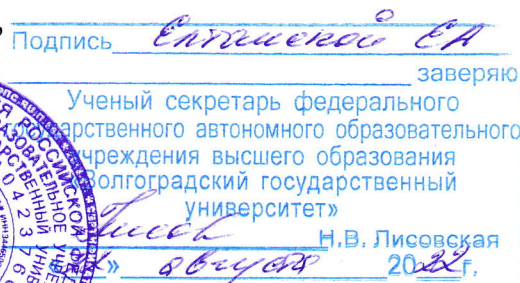 Подпись Елтанской ЕА
заверяю
Ученый секретарь федерального
государственного автономного образовательного
учреждения высшего образования
«Волгоградский государственный
университет»
Н.В. Лисовская
» августа 2022г.